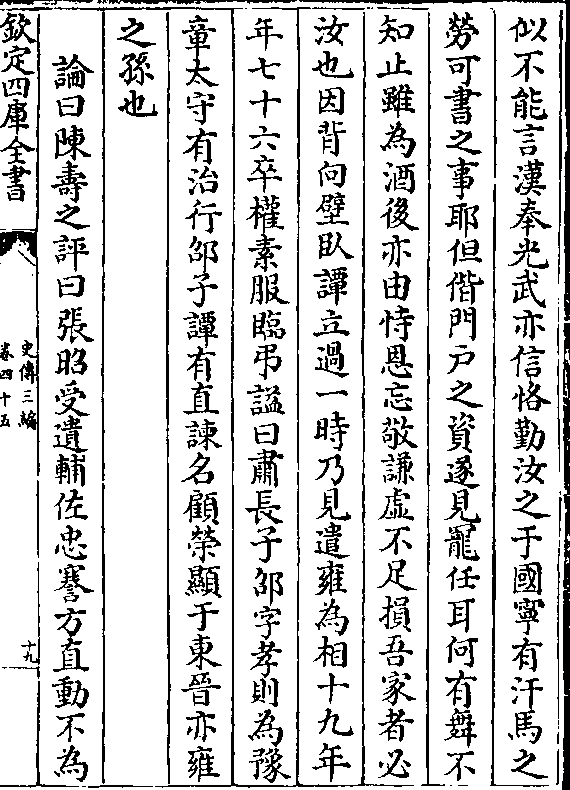 似不能言漢奉光武亦信恪勤汝之于國寧有汗馬之
勞可書之事耶但偕門戸之資遂見寵任耳何有舞不
知止雖為酒後亦由恃恩忘敬謙虛不足損吾家者必
汝也因背向壁臥譚立過一時乃見遣雍為相十九年
年七十六卒權素服臨弔諡曰肅長子邵字孝則為豫
章太守有治行邵子譚有直諫名顧榮顯于東晉亦雍
之孫也
論曰陳壽之評曰張昭受遺輔佐忠謇方直動不為
欽定四庫全書
史傳三編
卷四十五
十九